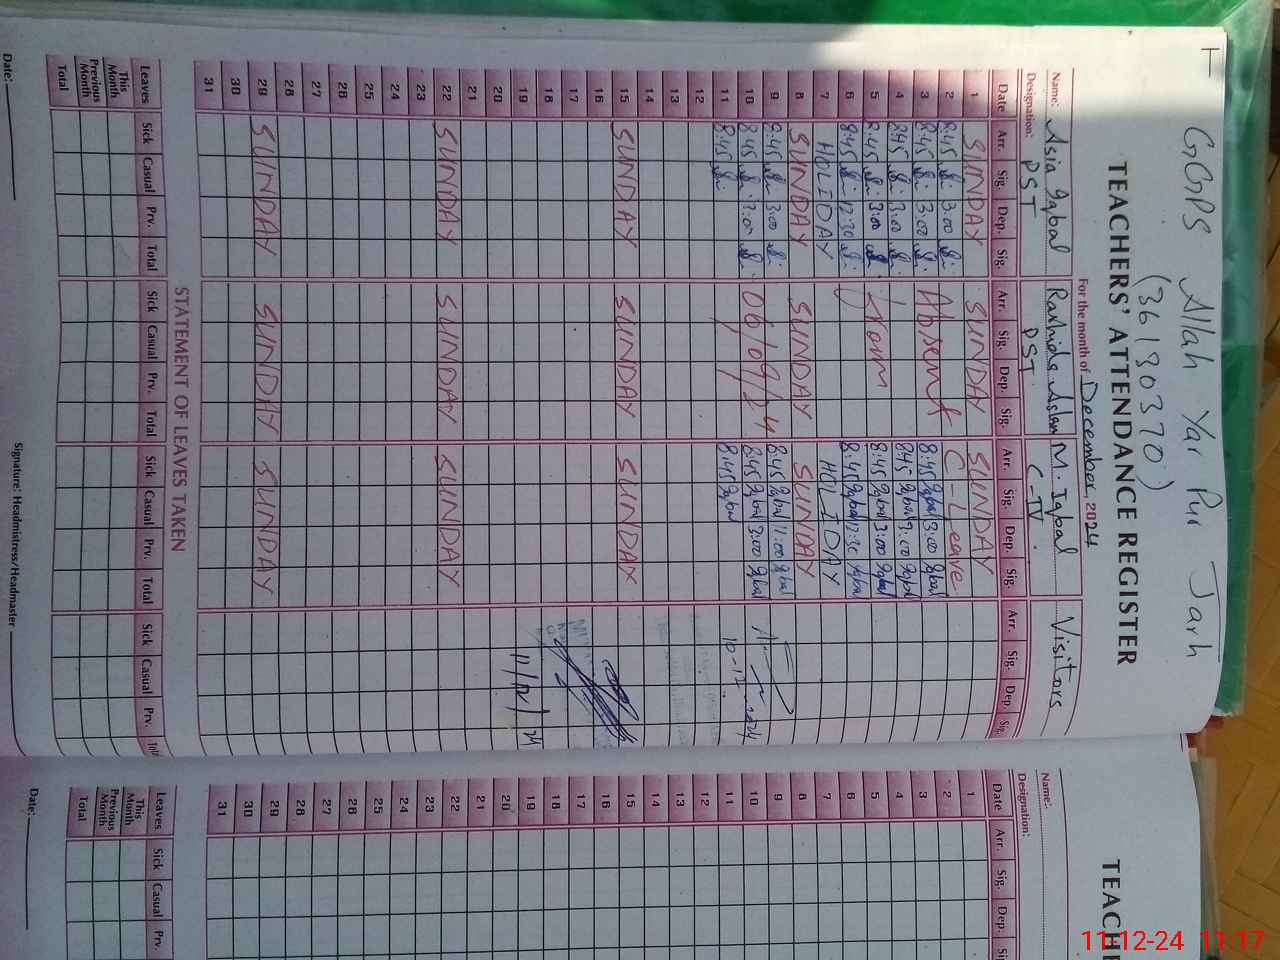 GGPS Allah Yar Pur Jarh
(36130370)
TEACHERS' ATTENDANCE REGISTER
For the month of December, 2024
Name: Asia Iqbal Rashida Aslam M. Iqbal Visitors
Designation: PST PST C-IV
Date Arr. Sig. Dep. Sig. Arr. Sig. Dep. Sig. Arr. Sig. Dep. Sig. Arr. Sig. Dep Sig.
1 SUNDAY SUNDAY SUNDAY
2 8:45 3:00 C-Leave
3 8:45 3:00 Absent 8:45 Iqbal 3:00 Iqbal
4 8:45 3:00 8:45 Iqbal 3:00 Iqbal
5 8:45 3:00 from 8:45 Iqbal 3:00 Iqbal
6 8:45 12:30 8:45 Iqbal 12:30 Iqbal
7 HOLIDAY HOLIDAY
8 SUNDAY SUNDAY SUNDAY
9 8:45 3:00 8:45 Iqbal 11:00 Iqbal
10 8:45 3:00 06/09/24 8:45 Iqbal 3:00 Iqbal
11 8:45 8:45 Iqbal 10-12-2024
12
13
14
15 SUNDAY SUNDAY SUNDAY
16
17
18
19 11/12/24
20
21
22 SUNDAY SUNDAY SUNDAY
23
24
25
26
27
28
29 SUNDAY SUNDAY SUNDAY
30
31
STATEMENT OF LEAVES TAKEN
Leaves Sick Casual Prv. Total Sick Casual Prv. Total Sick Casual Prv. Total Sick Casual Prv. Total
This Month
Previous Month
Total
Date: Signature: Headmistress/Headmaster
TEACH
Name:
Designation:
Date Arr. Sig. Dep. Sig.
1
2
3
4
5
6
7
8
9
10
11
12
13
14
15
16
17
18
19
20
21
22
23
24
25
26
27
28
29
30
31
Leaves Sick Casual Prv.
This Month
Previous Month
Total
Date:
11-12-24 11:17